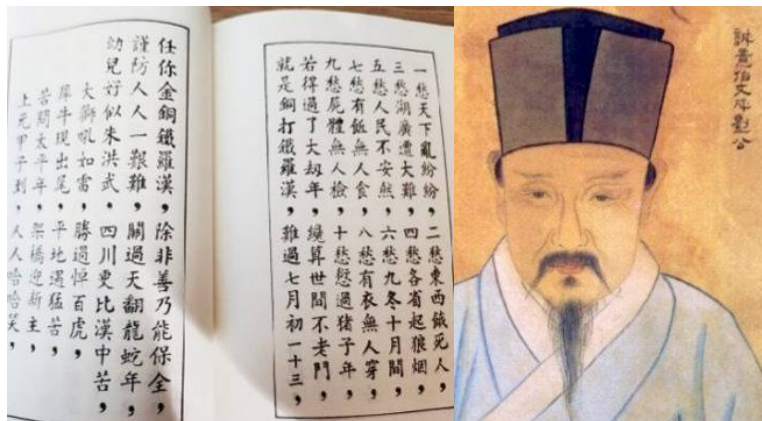 一愁天下亂紛紛，二愁東西餓死人，
三愁湖廣遭大難，四愁各省起狼烟，
五愁人民不安然，六愁九冬十月間，
七愁有飯無人食，八愁有衣無人穿，
九愁屍體無人檢，十愁愆過猪子年，
若得過了大刼年，纔算世間不老鬥，
就是銅打鐵羅漢，難過七月初一十三，
任你金銅鐵羅漢，除非善乃能保全，
謹防人人一艱難，關過天翻龍蛇年，
幼兒好似朱洪武，四川更比漢中苦，
大獅吼如雷，勝過悼百虎，
犀牛現出尾，平地遇猛苦，
若問太平年，架橋迎新主，
上元甲子到，人人哈哈笑，
誠意伯文成劉公